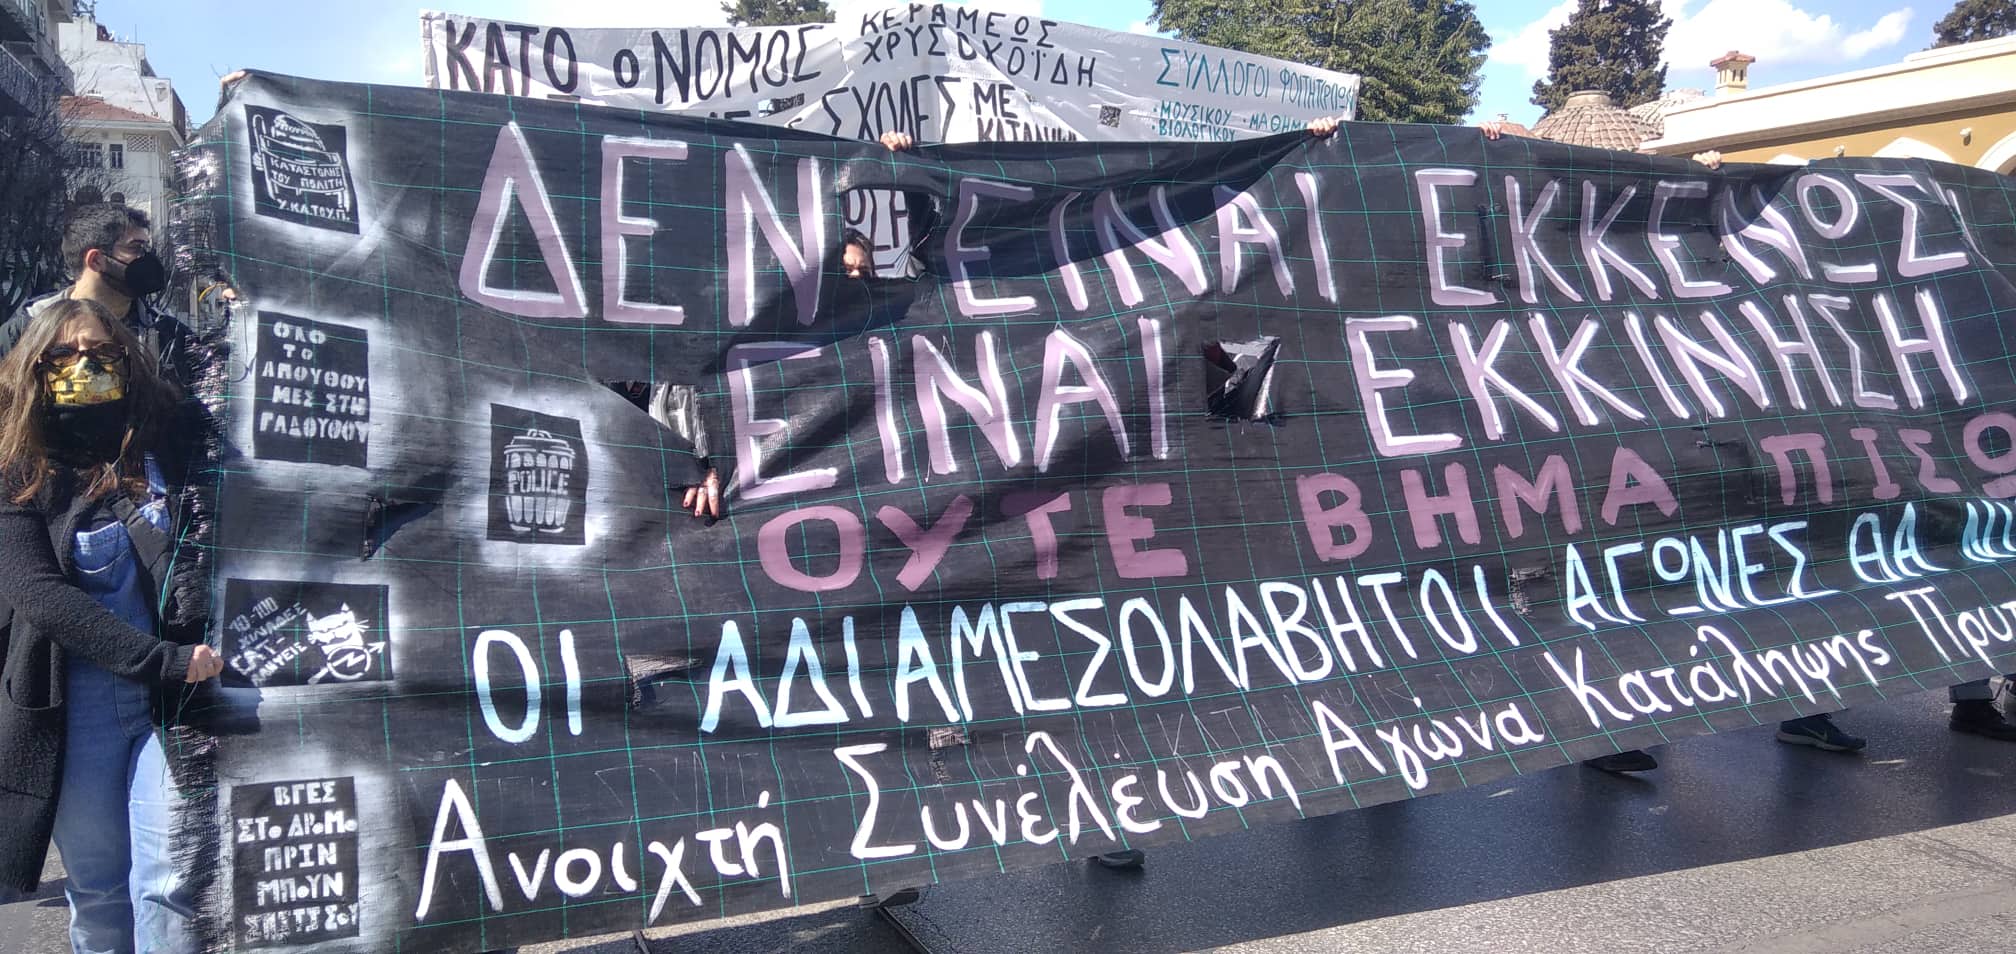 ΚΑΤΩ Ο ΝΟΜΟΣ
ΚΕΡΑΜΕΩΣ
ΧΡΥΣΟΧΟΪΔΗ
ΣΧΟΛΕΣ ΜΕ
ΣΥΛΛΟΓΟΙ ΦΟΙΤΗΤΡΙΩΝ
·ΜΟΥΣΙΚΟΥ ·ΜΑΘΗΜ
·ΒΙΟΛΟΓΙΚΟΥ
ΔΕΝ ΕΙΝΑΙ ΕΚΚΕΝΩΣΗ
ΕΙΝΑΙ ΕΚΚΙΝΗΣΗ
ΟΥΤΕ ΒΗΜΑ ΠΙΣΩ
ΟΙ ΑΔΙΑΜΕΣΟΛΑΒΗΤΟΙ ΑΓΩΝΕΣ ΘΑ ΝΙ
Ανοιχτή Συνέλευση Αγώνα Κατάληψης Πρυτ
ΚΑΤΑΣΤΟΛΗΣ
ΤΟΥ ΠΟΛΙΤΗ
Υ.ΚΑ.ΤΟΥ.Π.
ΟΛΟ
ΤΟ
ΑΠΟΥΘΟΥ
ΜΕΣ ΣΤΗ
ΓΛΔΟΥΘΟΥ
POLICE
10-100
ΧΙΛΙΑΔΕΣ
CAT-
ΛΗΨΕΙΣ
ΒΓΕΣ
ΣΤο ΔΡοΜο
ΠΡΙΝ
ΜΠΟΥΝ
ΣΠΙΤΙ ΣΟΥ